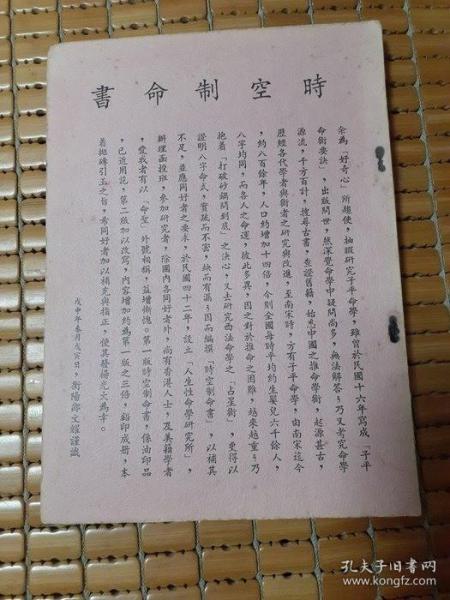 書命制空時
余為「好奇心」所趨使,抽暇研究子平命學,雖曾於民國十六年寫成「子平
命術要訣」,出版問世,然深覺命學中疑問尚多,無法解答;乃又考究命學
源流,千方百計,搜尋古書,查證舊籍,始知中國之推命學術,起源甚古,
歷經各代學者與術者之研究與改進,至南宋時,方有子平命學,由南宋迄今
,約八百餘年,人口約增加十四倍,今則全國每時平均約生嬰兒六千餘人,
八字均同,而各人之命運,彼此多異,因之對於推命之困難,越來越重;乃
抱着「打破砂鍋問到底」之決心,又去研究西法命學之「占星術」,更得以
證明八字命式,實疏而不密,缺而有漏;因而編撰「時空制命書」,以補其
不足,並應同好者之要求,於民國四十二年,設立「人生性命學研究所」,
辦理函授班,參加研究者,除國內各同好者外,尚有香港人士,及美籍學者
,愛我者有以「命聖」外號相稱,益增慚愧。第一版時空制命書,係油印品
,已近用完,第二版加以改寫,內容增加約為第一版之三倍,鉛印成冊,本
着拋磚引玉之旨,希同好者加以補充與指正,使其發揚光大為幸。
戊申年叁月戊寅日,衡陽鄒文耀謹識
孔夫子旧书网
www.kongfz.com